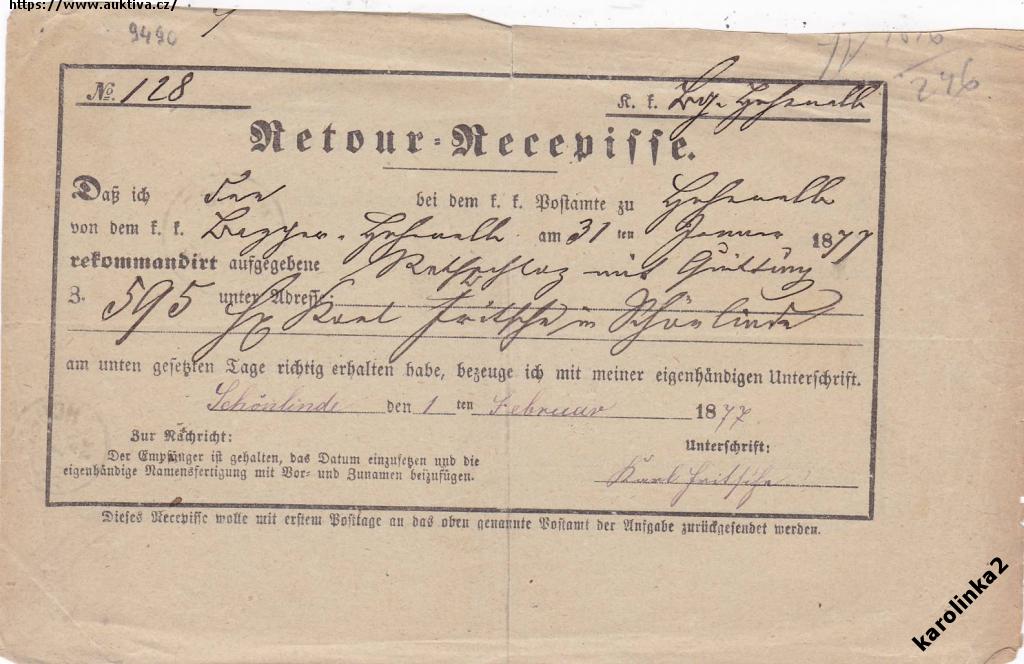 https://www.auktiva.cz/
9490
246
No. 128
K. k. Bzg. Hohenelbe
Retour-Recepisse.
Daß ich den bei dem k. k. Postamte zu Hohenelbe
von dem k. k. Hohenelbe am 31 ten Jänner 1877
rekommandirt aufgegebene mit Quittung
Z. 595 unter Adresse: Karl Fritsche in Schönlinde
am unten gesetzten Tage richtig erhalten habe, bezeuge ich mit meiner eigenhändigen Unterschrift.
Schönlinde den 1 ten Februar 1877
Zur Nachricht:
Der Empfänger ist gehalten, das Datum einzusetzen und die
eigenhändige Namensfertigung mit Vor- und Zunamen beizufügen.
Unterschrift:
Karl Fritsche
Dieses Recepisse wolle mit erstem Posttage an das oben genannte Postamt der Aufgabe zurückgesendet werden.
karolinka2